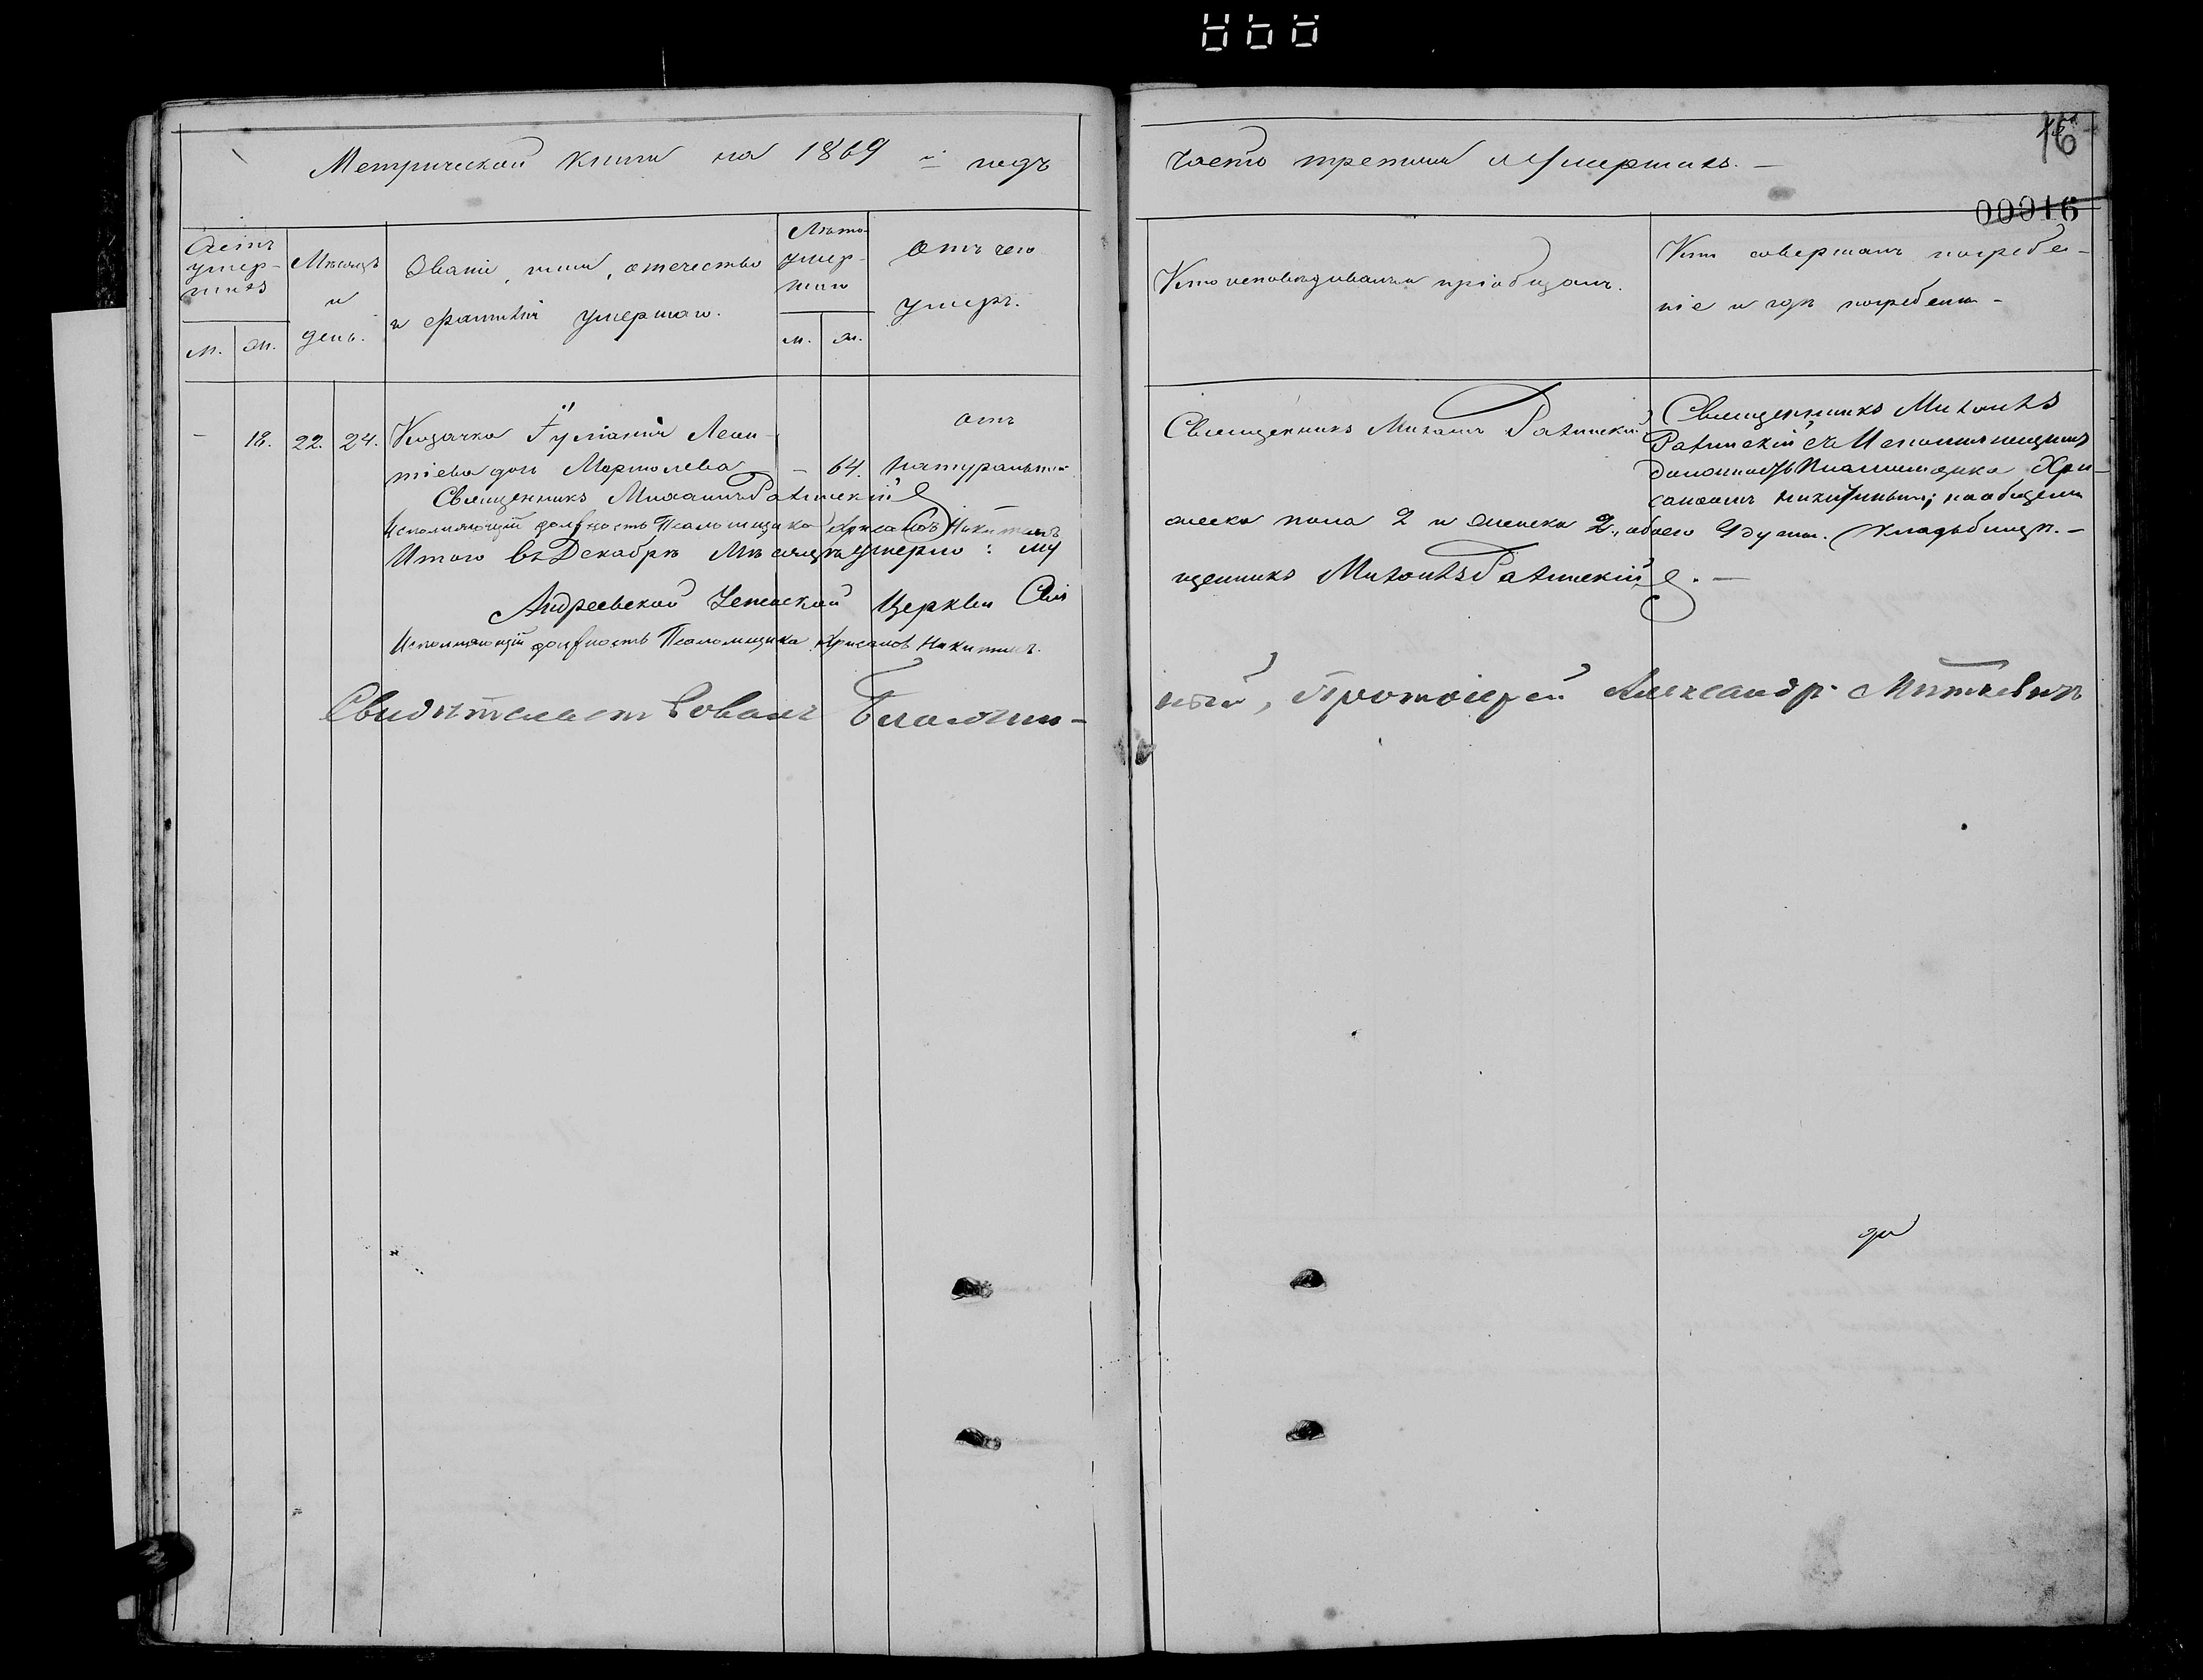 76
00916
Метрической книги на 1869 й годъ
часть третия о умершихъ. —
Счетъ умер-
шихъ
м. ж.
Мѣсяцъ
и
день.
Званіе, имя, отечество
и фамилія умершаго.
Лѣто
умер-
шаго
м. ж.
Отъ чего
умеръ.
Кто исповѣдывалъ и пріобщалъ.
Кто совершалъ погребе-
ніе и гдѣ погребены —
— 18. 22. 24. Козачка Іуліанія Леон-
тіева дочь Мартолева — 64.
отъ
натуральной
Священникъ Михаилъ
Священникъ Михаилъ
съ Исполняющимъ
должность Псаломщика Хри-
санѳомъ Никитинымъ; на общемъ
кладьбищѣ. —
Священникъ Михаилъ
Исполняющій должность Псаломщика Хрисанов Никитинъ
Итого въ Декабрѣ Мѣсяцѣ умерло: му
жеска пола 2 и женска 2, обоего 4 души.
Андреевской Церкви Свя
щенникъ Михаилъ
Исполняющій должность Псаломщика Хрисанов Никитинъ.
Свидѣтельствовалъ Благочин-
ный, Протоіерей Александръ